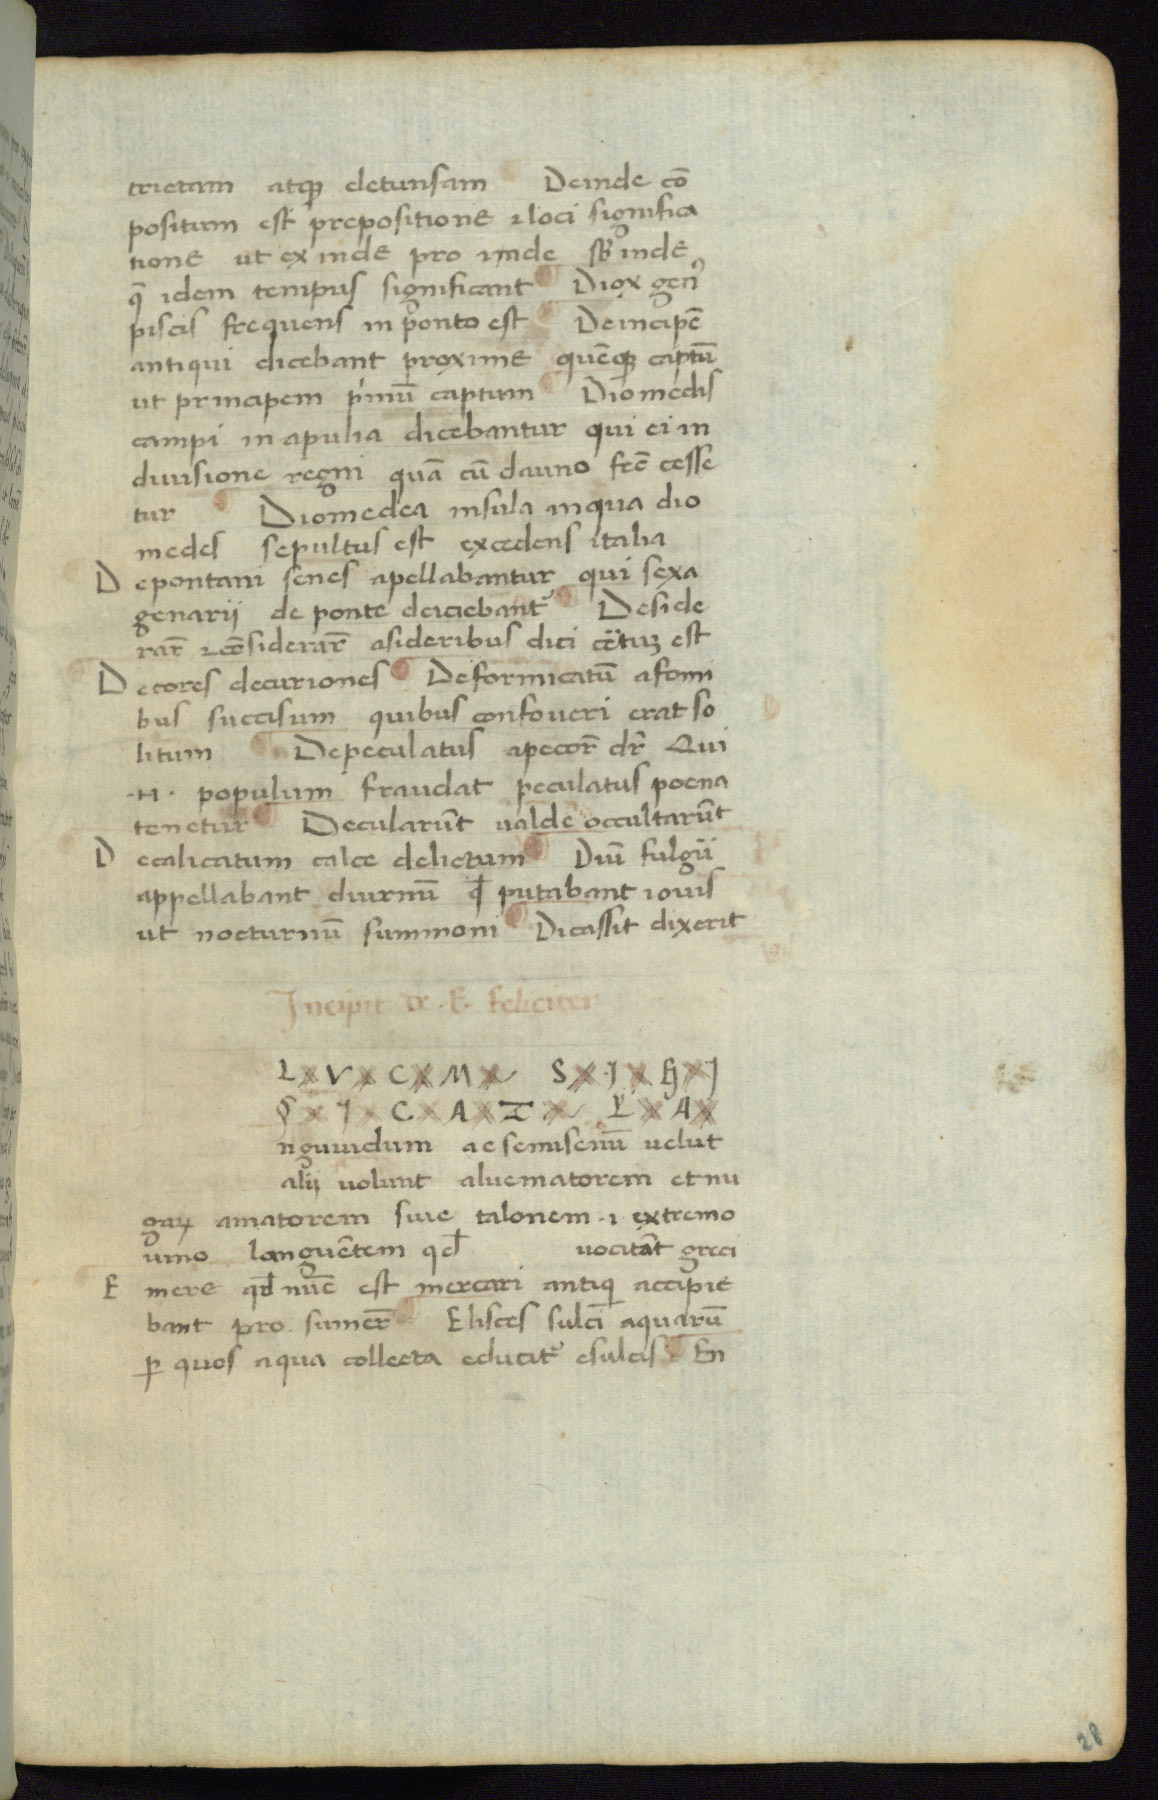 trictam atqꝫ detunsam Deinde cō
positum est prepositione ⁊ loci significa
tione ut ex inde pro inde sb inde
q̄ idem tempus significant Diox gen⁹
piscis frequens in ponto est Deincipē
antiqui dicebant proxime quēqꝫ captū
ut principem primū captum Diomedis
campi in apulia dicebantur qui ei in
diuisione regni quā cū dauno fec̄ cesse
tur Diomedea insula in qua dio
medes sepultus est excedens italia
Depontani senes apellabantur qui sexa
genarij de ponte deiciebant᷑ Deside
rar̄ ⁊ cōsiderar̄ asideribus dici certuꝫ est
Decores decuriones Defornicatū afomi
bus succisum quibus confoueri erat so
litum Depeculatus apecor̄ dr̄ Qui
.n. populum fraudat peculatus poena
tenetur Decularūt ualde occultarūt
Decalicatum calce delictum Diū fulgū
appellabant diurnū qd̄ putabant iouis
ut nocturnū summoni Dicassit dixerit
Incipit E. feliciter
L V C M S I H I
S I C A
nguuidum ac semisenū uelut
alij uolunt aluematorem et nu
gaꝝ amatorem siue talonem .i. extremo
uino languētem qd̄ uocitāt greci
Emere qd̄ nūc est mercari antiqi accipie
bant pro sumer̄ Elisces sulci aquarū
ꝑ quos aqua collecta educit᷑ esulcis En
28